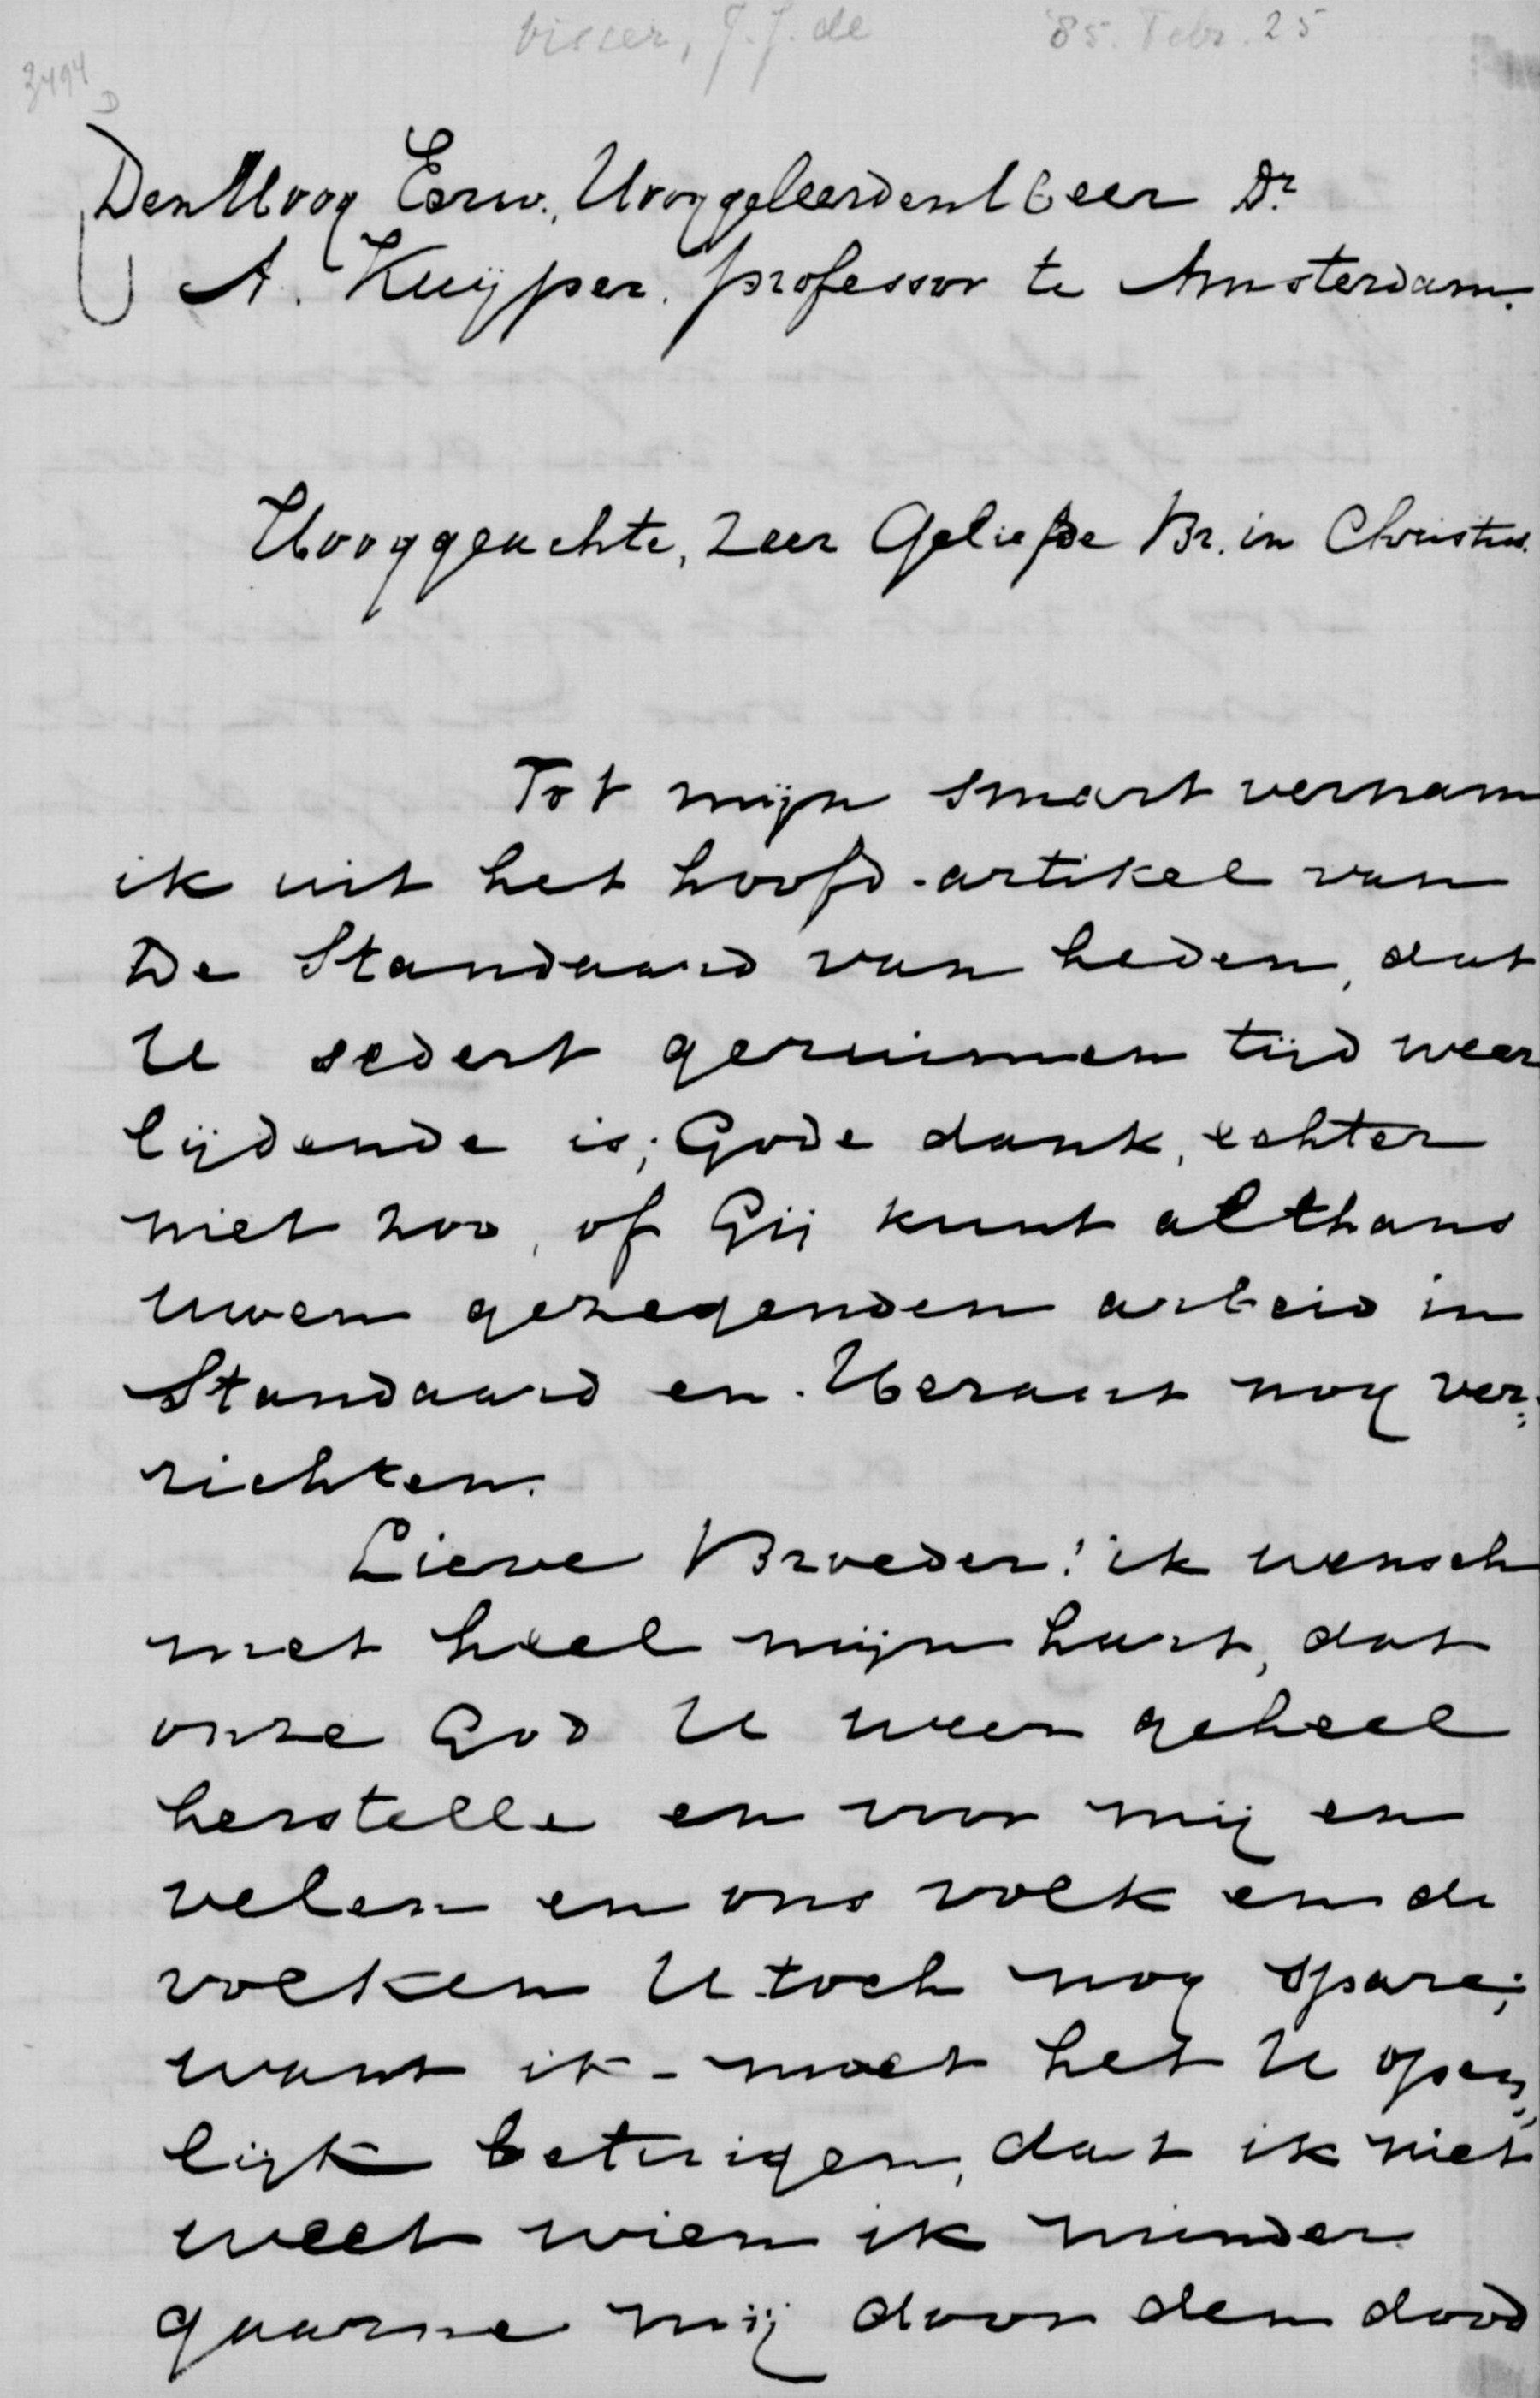 Visser, J. J. de 85. Febr. 25
3494
D
Den Hoog Eerw., Hooggeleerden Heer Dr.
A. Kuijper, professor te Amsterdam.
Hooggeachte, Zeer Geliefde Br. in Christus.
Tot mijn smart vernam
ik uit het hoofd-artikel van
De Standaard van heden, dat
U sedert geruimen tijd weer
lijdende is; Gode dank, echter
niet zoo, of Gij kunt althans
uwen gezegenden arbeid in
Standaard en Heraut nog ver„
richten.
Lieve Broeder! ik wensch
met heel mijn hart, dat
onze God U weer geheel
herstelle en voor mij en
velen en ons volk en de
volken U toch nog spare;
want ik - moet het U open„
lijk betuigen, dat ik niet
weet wien ik minder
gaarne mij door den dood